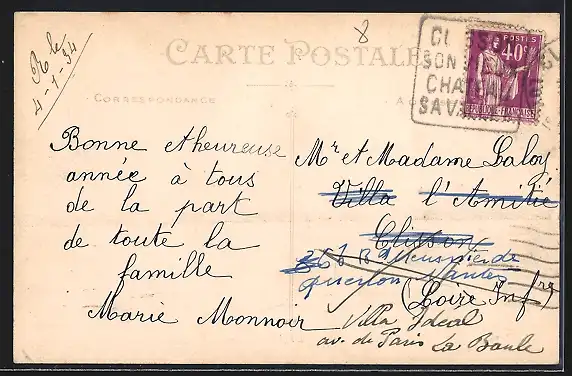 Rle
4-1-34
8
CARTE POSTALE
CORRESPONDANCE
POSTES
40c
RÉPUBLIQUE FRANÇAISE
SON
CHAT
SAV
Bonne et heureuse
année à tous
de la part
de toute la
famille
Marie Monnoir
Mr et Madame Laloy
Villa l'Amitié
Clisson
Bd
Nantes
(Loire Infre
Villa Idéal
av. de Paris La Baule